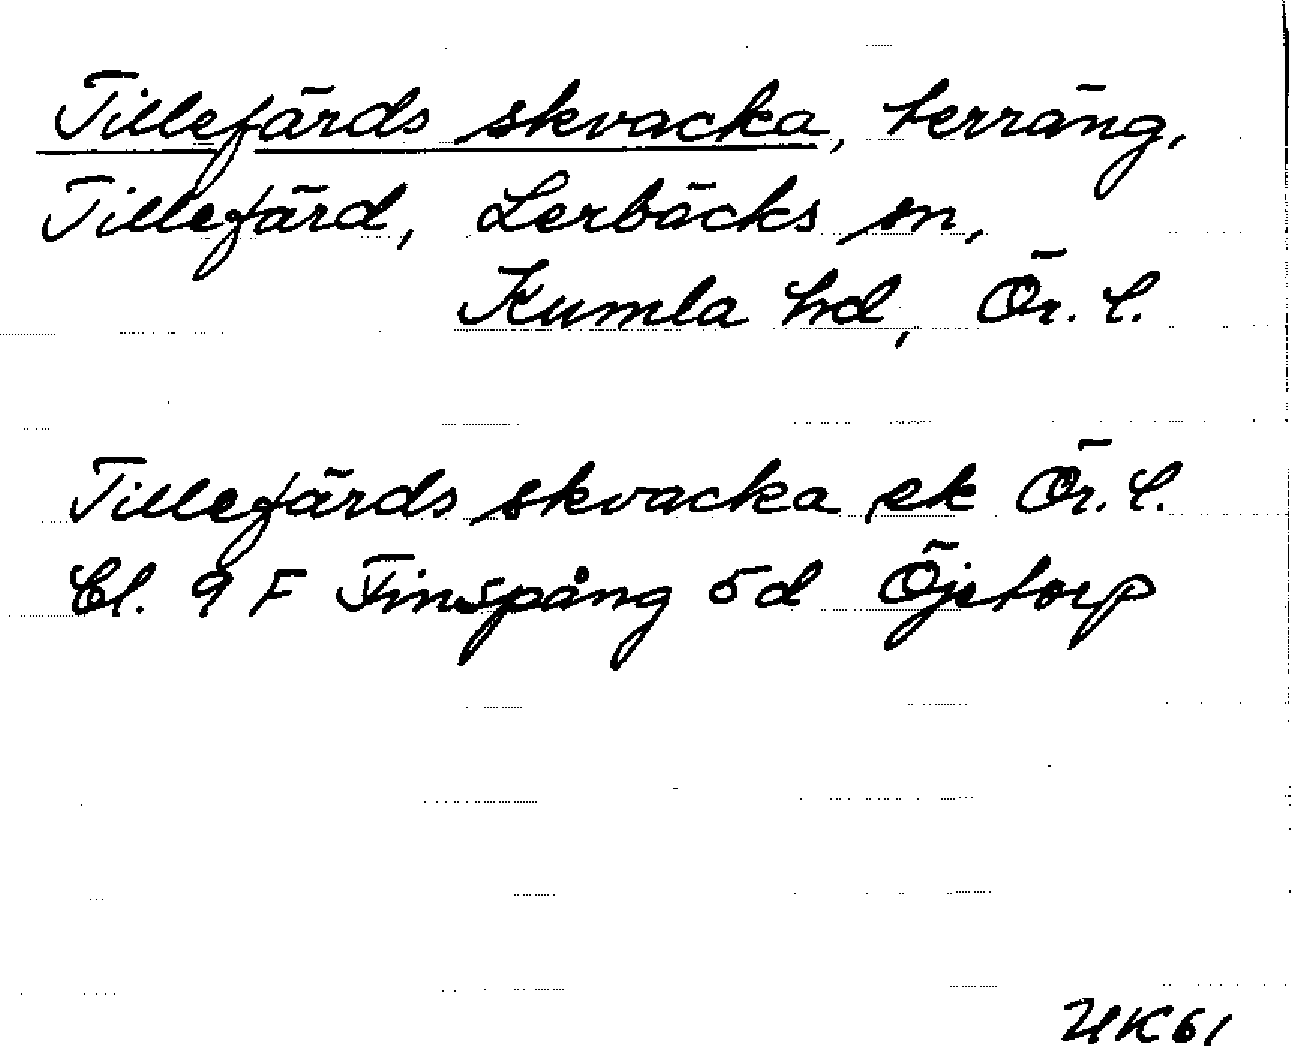 Tillefärds skvacka, terräng,
Tillefärd, Lerbäcks sn,
Kumla hd, Ör. l.
Tillefärds skvacka ek Ör. l.
Bl. 9 F Finspång 5d Öjetorp
UK61